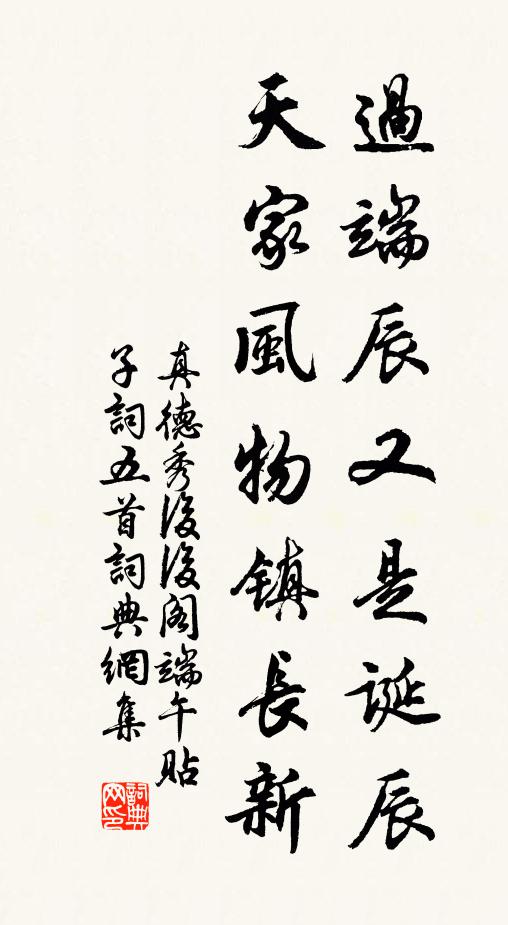 過端辰又是誕辰
天家風物鎮長新
真德秀後後阁端午贴
子詞五首詞典網集
詞典网印